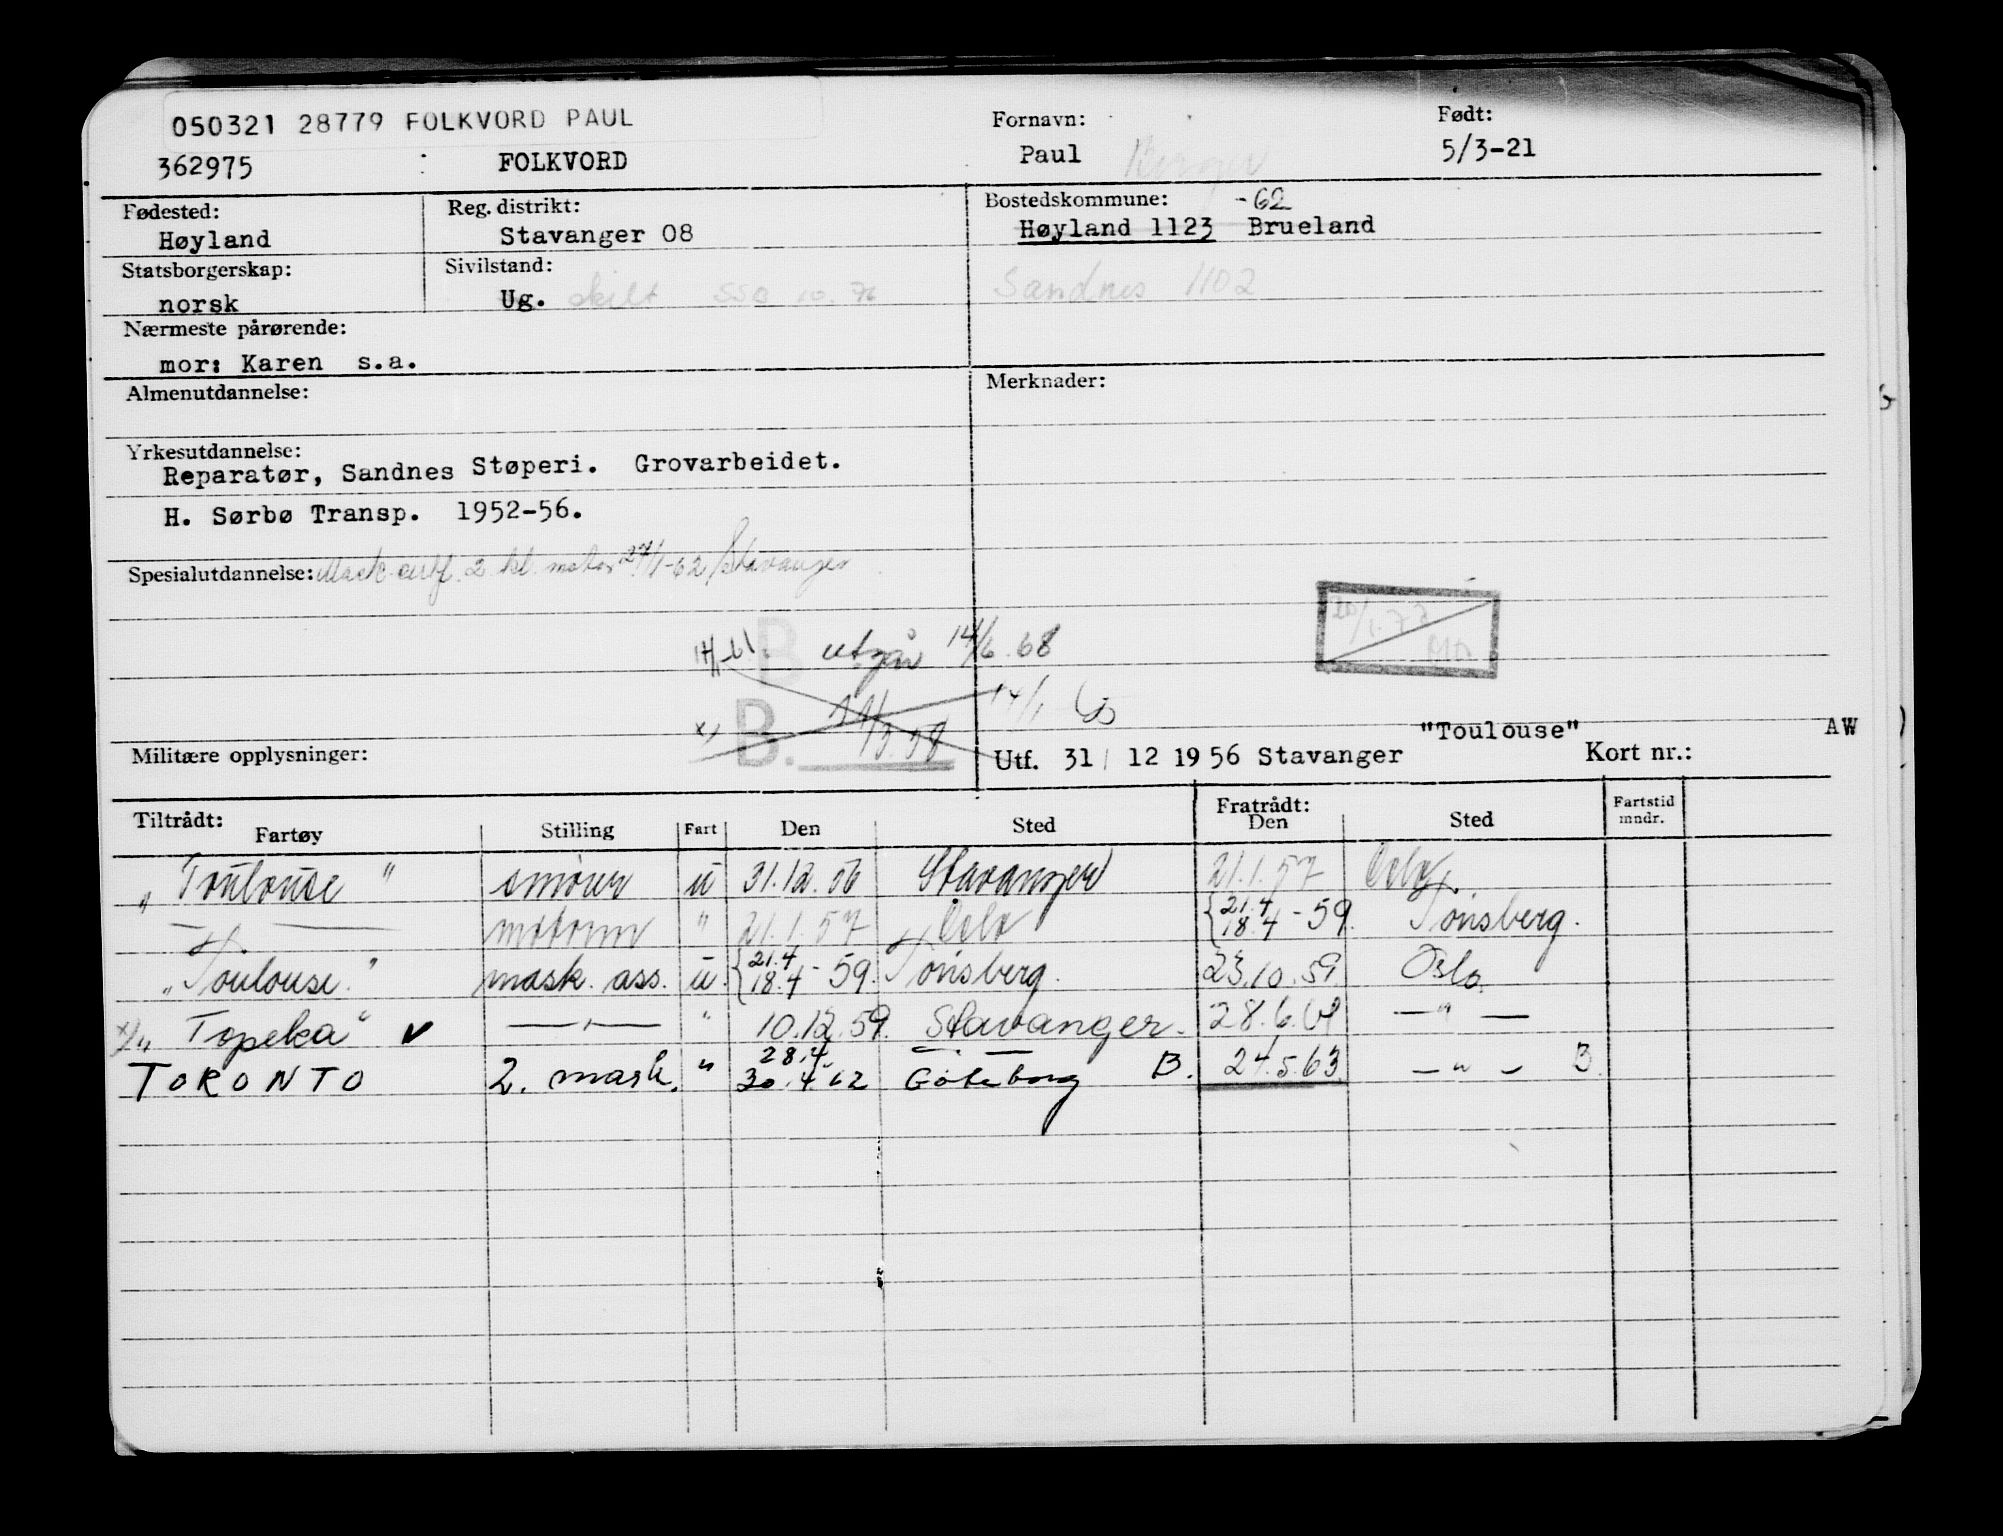 050321 28779 FOLKVORD PAUL
362975 : FOLKVORD
Fornavn:
Paul
Født:
5/3-21
Fødested:
Høyland
Reg. distrikt:
Stavanger 08
Bostedskommune: -62
Høyland 1123 Brueland
Statsborgerskap:
norsk
Sivilstand:
Ug. skilt SSØ 10.76
Sandnes 1102
Nærmeste pårørende:
mor: Karen s.a.
Almenutdannelse:
Merknader:
Yrkesutdannelse:
Reparatør, Sandnes Støperi. Grovarbeidet.
H. Sørbø Transp. 1952-56.
Spesialutdannelse: Mask. cert. 2 kl. motor 27/1-62 Stavanger
B utgår 14/6.68
x) B. 11/3.58 14/1
Militære opplysninger:
Utf. 31/12 1956 Stavanger "Toulouse" Kort nr.: AW
Tiltrådt:
Fartøy Stilling Fart Den Sted
Fratrådt:
Den Sted
Fartstid
mndr.
"Toulouse" smører u 31.12.56 Stavanger 21.1.57 Oslo
— " — motorm " 21.1.57 Oslo {21.4 18.4 - 59. Tønsberg.
"Toulouse" mask. ass. u. {21.4 18.4 - 59. Tønsberg. 23.10.59. Oslo
x/ "Topeka" v — " — " 10.12.59. Stavanger. 28.6.61 — " —
TORONTO 2. mask. " 28.4. 30.4.62 Göteborg B. 24.5.63 — " — B.